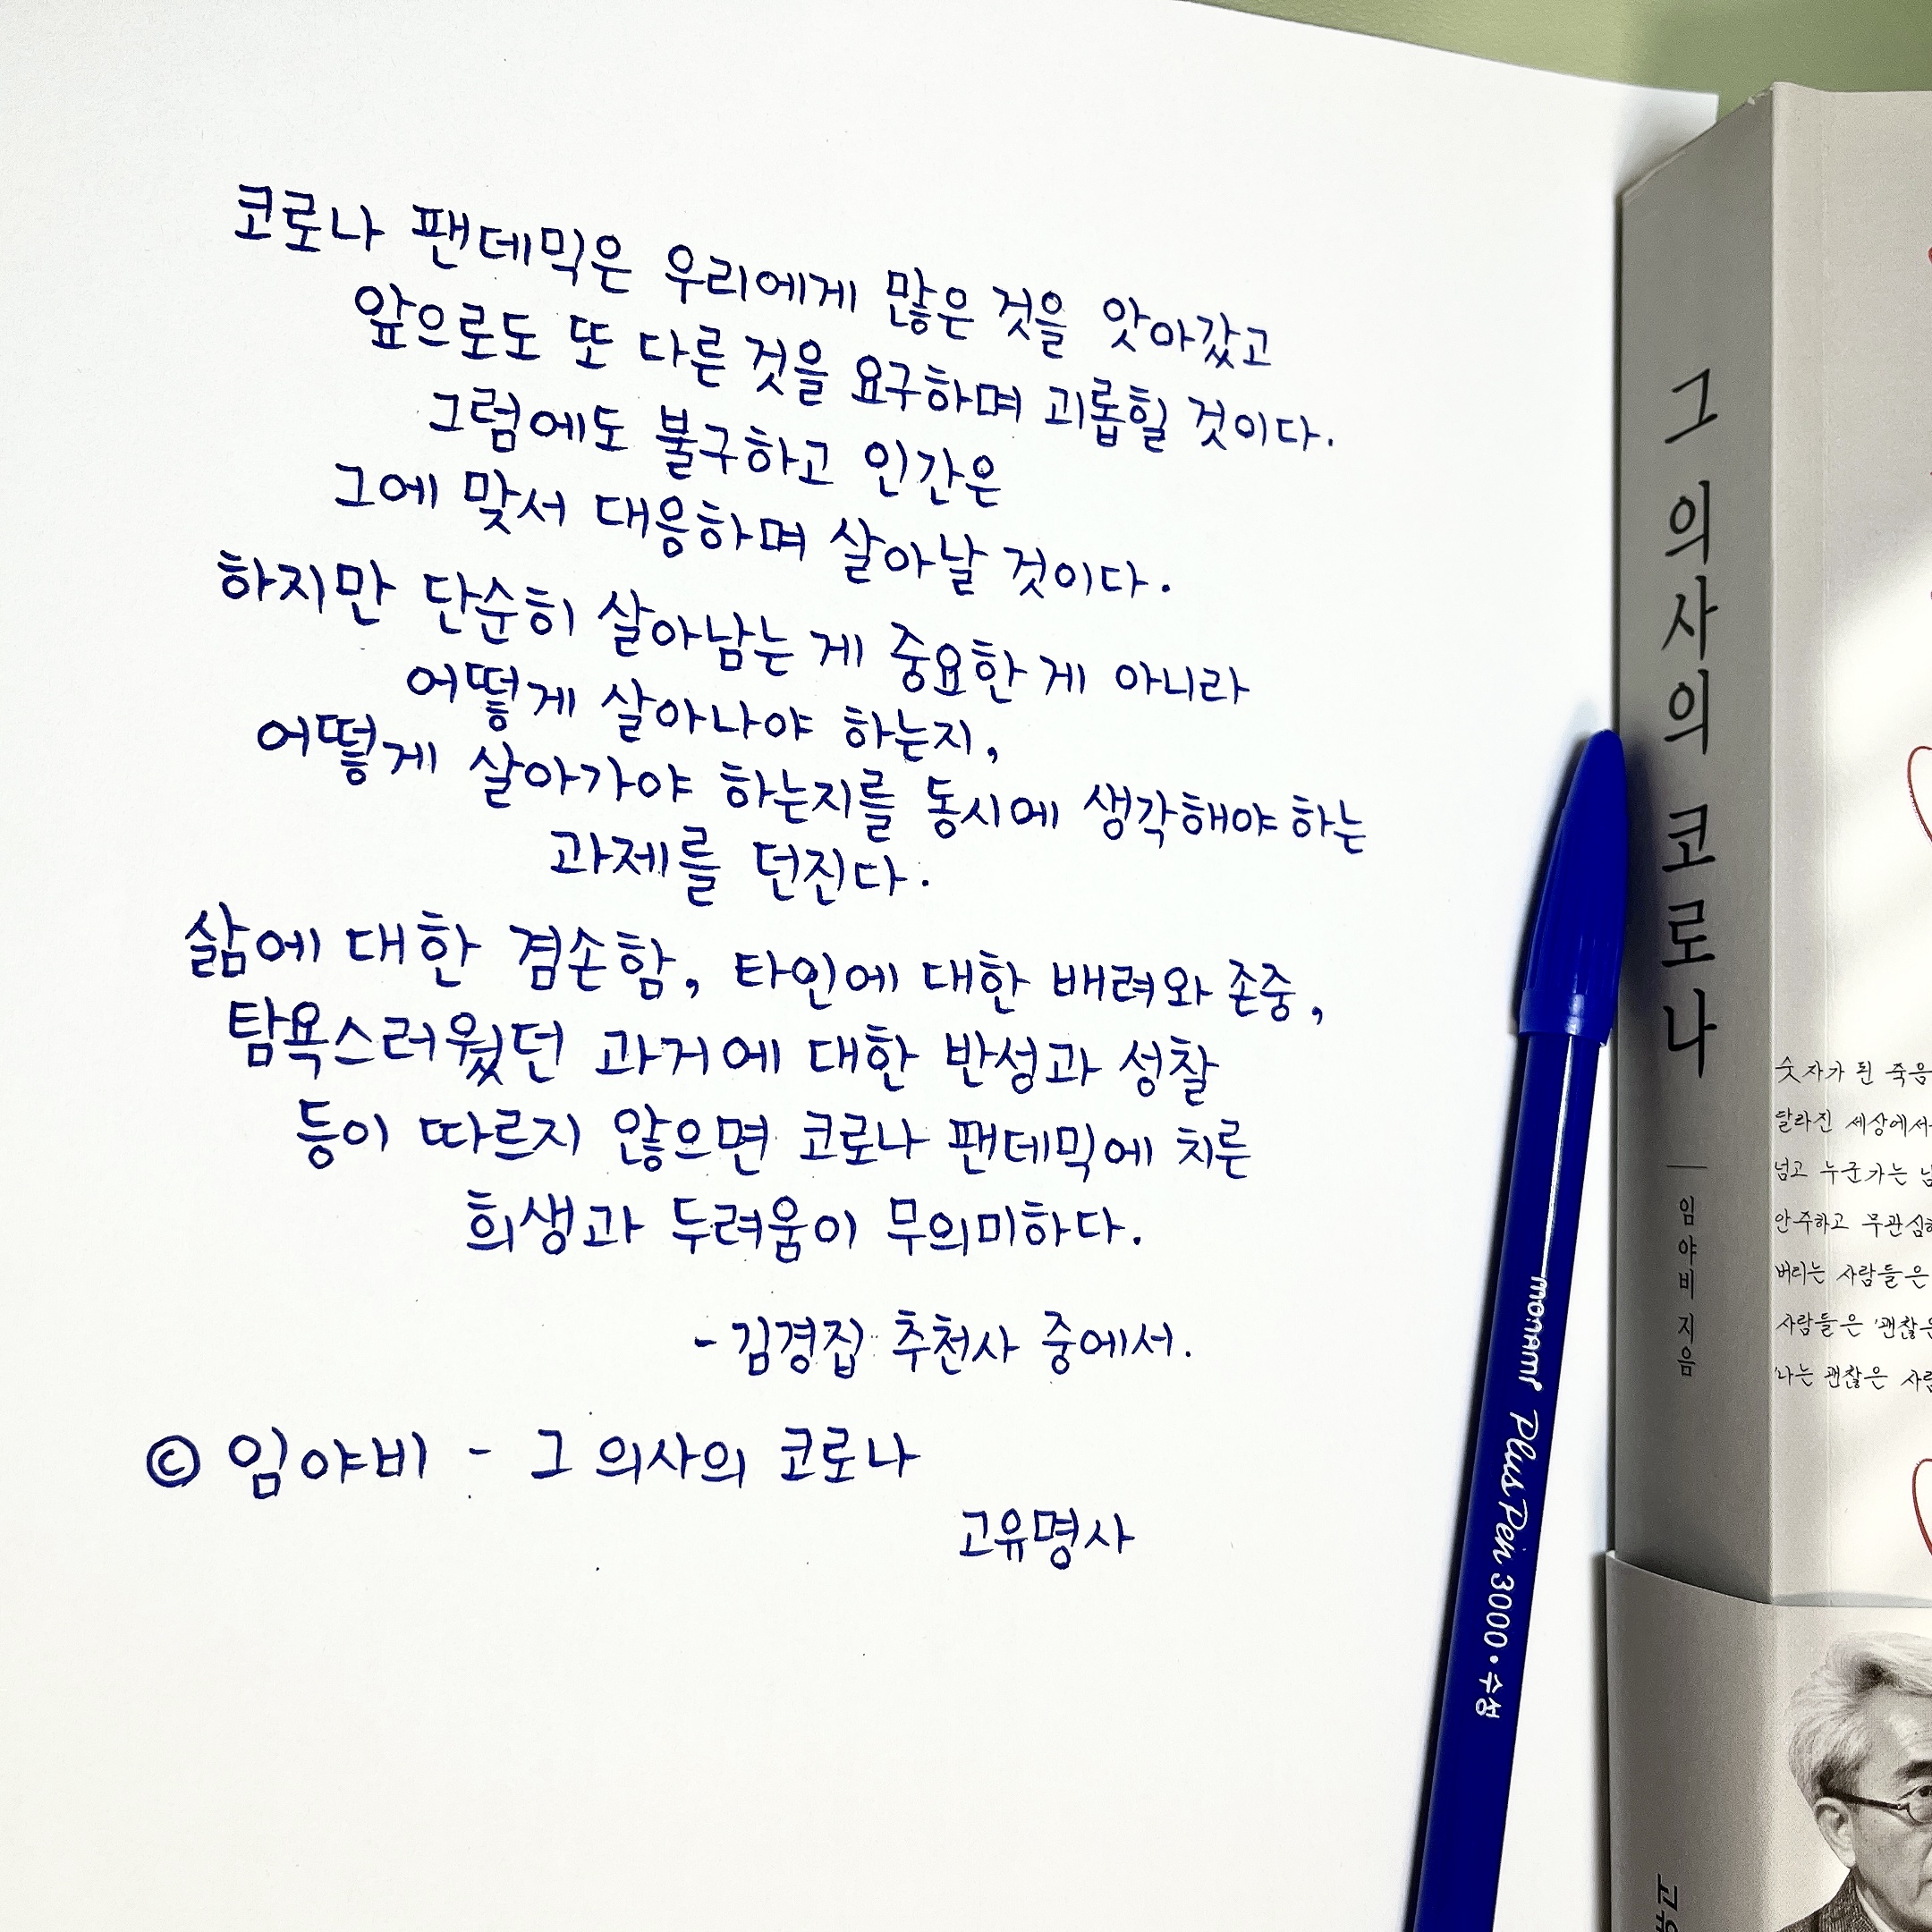 코로나 팬데믹은 우리에게 많은 것을 앗아갔고
앞으로도 또 다른 것을 요구하며 괴롭힐 것이다.
그럼에도 불구하고 인간은
그에 맞서 대응하며 살아날 것이다.
하지만 단순히 살아남는 게 중요한 게 아니라
어떻게 살아나야 하는지,
어떻게 살아가야 하는지를 동시에 생각해야 하는
과제를 던진다.
삶에 대한 겸손함, 타인에 대한 배려와 존중,
탐욕스러웠던 과거에 대한 반성과 성찰
등이 따르지 않으면 코로나 팬데믹에 치른
희생과 두려움이 무의미하다.
- 김경집 추천사 중에서.
© 임야비 - 그 의사의 코로나
고유명사
monami Plus Pen 3000 • 수성
그 의사의 코로나
임야비 지음
숫자가 된 죽음
달라진 세상에서
넘고 누군가는
안주하고 무관심
버리는 사람들은
사람들은 '괜찮은
'나는 괜찮은 사람
고유